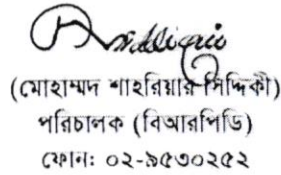 (মোহাম্মদ শাহরিয়ার সিদ্দিকী)
পরিচালক (বিআরপিডি)
ফোন: ০২-৯৫৩০২৫২